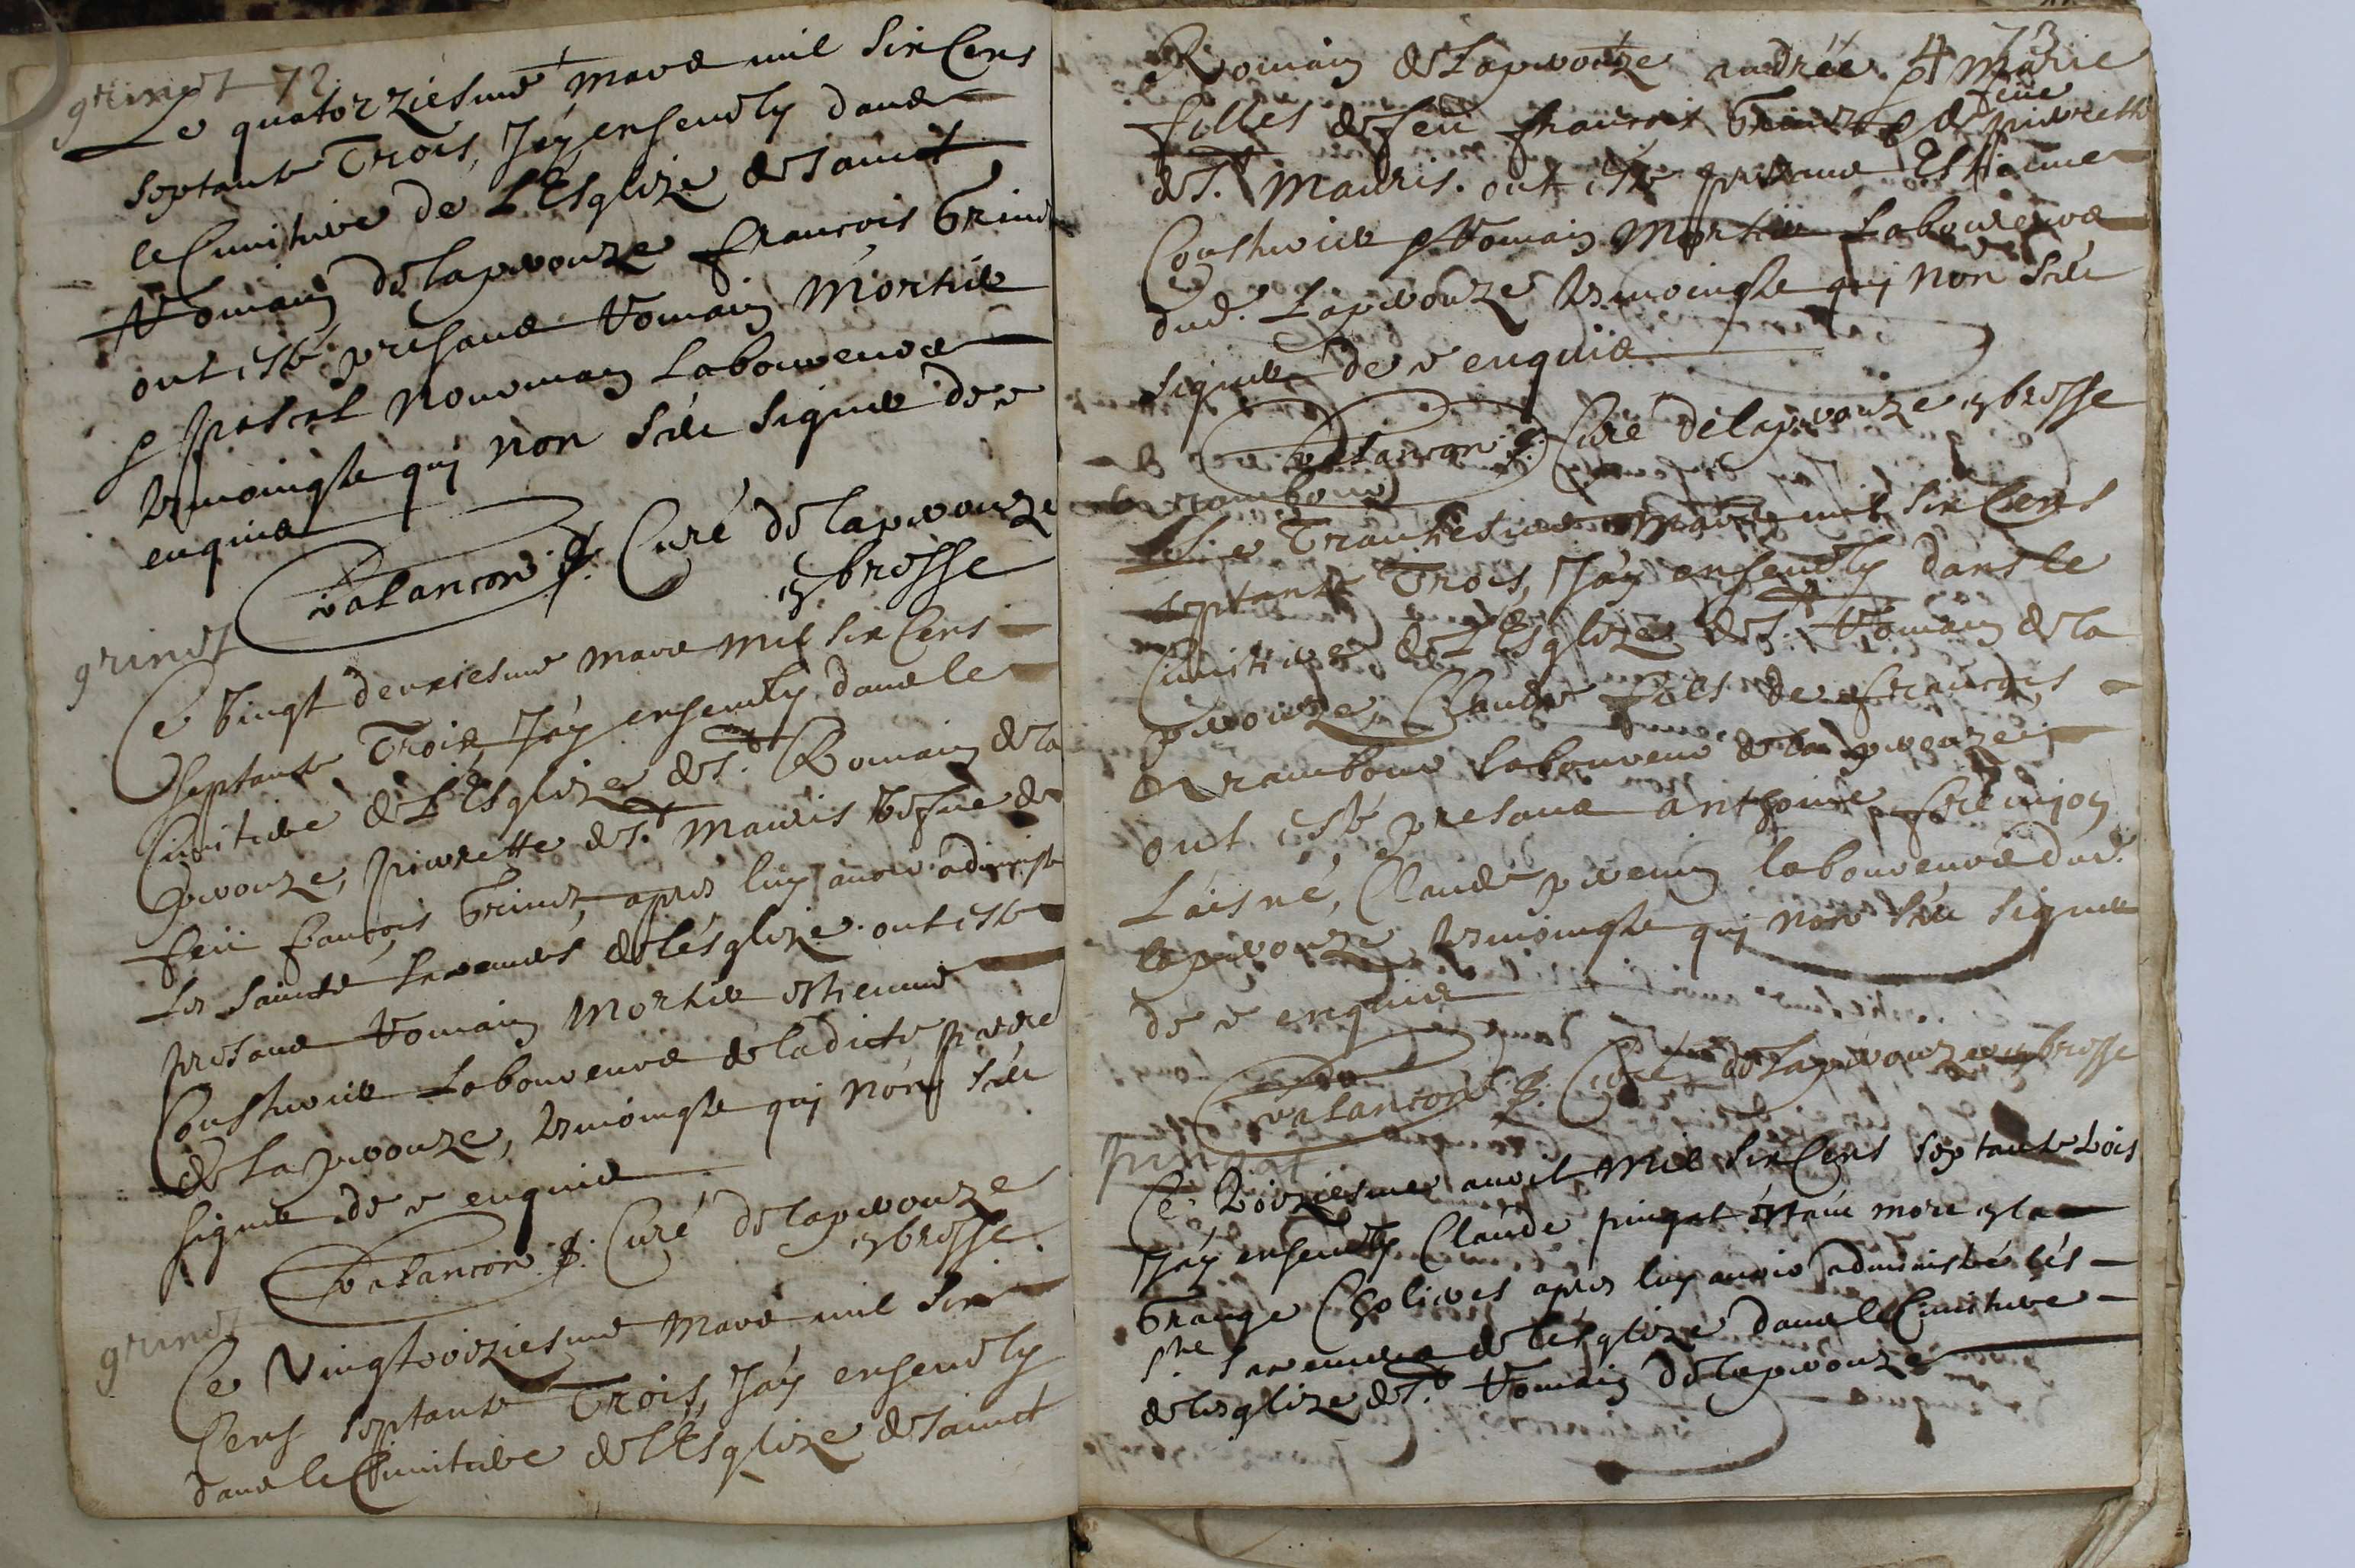 grinet 72
Le quatorziesme mars mil six Cens
septante Trois, J'ay ensevely dans
le Cimitiere de L'Esglize de sainct
Romain de laperouze francois Grinet
ont esté presans Romain Mortier
& pascal nouueman laboureurs
tesmoingts qui non sceu signer de ce
enquis
Valancon p. Curé de laperouze
et brosse
grinet
Ce vingt deuxiesme mars mil six Cens
septante Trois J'ay ensevely dans le
Cimitiere de L'Esglize de St. Romain de la
perouze, pierrette de St. Mauris vefue de
feu francois Grinet, apres luy avoir administré
les saincts sacremens de l'esglize. ont esté
presans Romain Mortier estienne
laboureurs de ladicte
de la perouze, tesmoingts qui non sceu
signer de ce enquis
Valancon p. Curé de laperouze
et brosse.
grinet
Ce Vingt troiziesme Mars mil six
Cens septante Trois, J'ay ensevely
dans le Cimitiere de L'Esglize de sainct
73
Romain de Laperouze andrée & Marie
filles de feu francois Grinet & de feue pierrette
de St. Mauris. ont esté presans Estienne
& Romain Mortier laboureurs
dud. Laperouze tesmoingts qui non sceu
signer de ce enquis
Valancon p. Curé de laperouze et brosse
Ce Trantiesme Mars mil six Cens
septante Trois, J'ay ensevely dans le
Cimitiere de L'Esglize de St. Romain de la
perouze, Claude fils de francois
laboureur de la perouze
ont esté presans anthoine
L'aisné, Claude laboureurs dud.
laperouze tesmoingts qui non sceu signer
de ce enquis
Valancon p. Curé de Laperouze et brosse
pingat
Ce troiziesme avril Mil six Cens septante trois
J'ay ensevely Claude pingat estant mort en la
Grange apres luy avoir administré les
sts. sacremens de l'esglize dans le Cimitiere
de l'esglize de St. Romain de laperouze